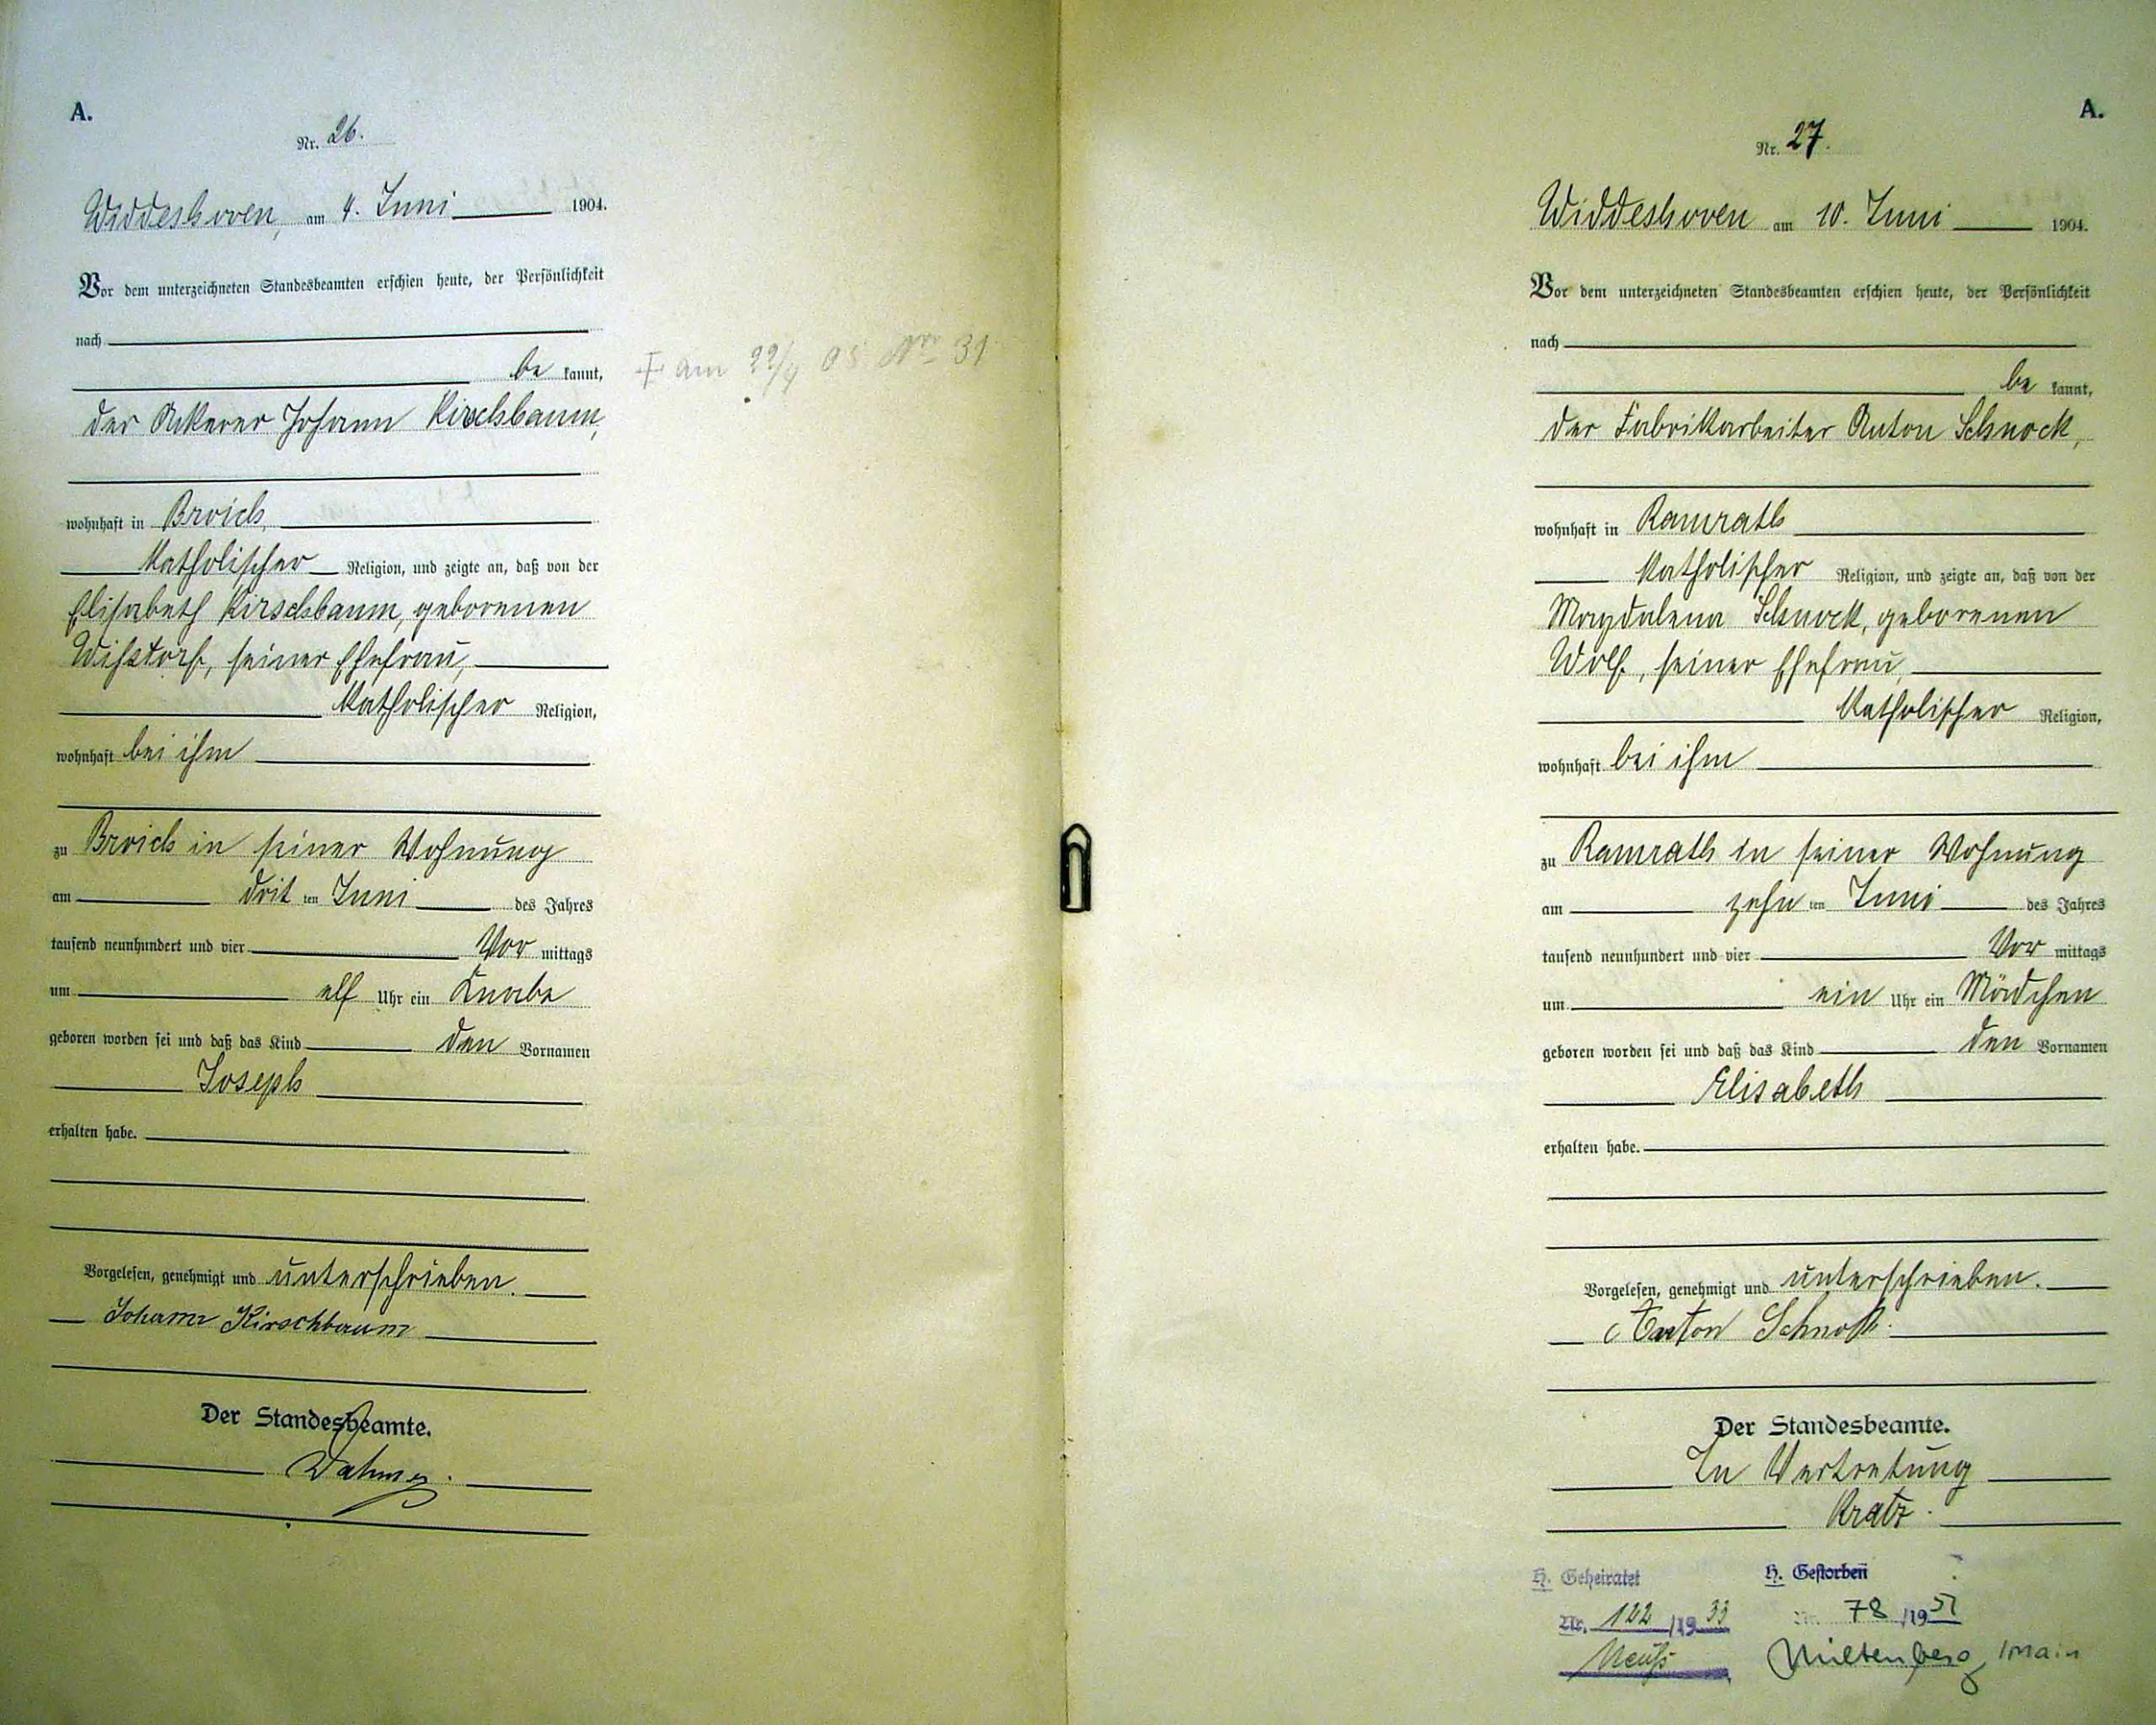 A.
Nr. 26.
Widdeshoven, am 4. Juni 1904.
Vor dem unterzeichneten Standesbeamten erschien heute, der Persönlichkeit
nach
be kannt,
der Ackerer Johann Kirschbaum,
wohnhaft in Broich,
katholischer Religion, und zeigte an, daß von der
Elisabeth Kirschbaum, geborenen
Wißtorf, seiner Ehefrau,
katholischer Religion,
wohnhaft bei ihm
zu Broich in seiner Wohnung
am drit ten Juni des Jahres
tausend neunhundert und vier Vor mittags
um elf Uhr ein Knabe
geboren worden sei und daß das Kind den Vornamen
Joseph
erhalten habe.
Vorgelesen, genehmigt und unterschrieben.
Johann Kirschbaum
Der Standesbeamte.
† am 22/4 05 Nro 31
A.
Nr. 27.
Widdeshoven am 10. Juni 1904.
Vor dem unterzeichneten Standesbeamten erschien heute, der Persönlichkeit
nach
be kannt,
der Fabrikarbeiter Anton Schnock,
wohnhaft in Ramrath
katholischer Religion, und zeigte an, daß von der
Magdalena Schnock, geborenen
Wolf, seiner Ehefrau,
katholischer Religion,
wohnhaft bei ihm
zu Ramrath in seiner Wohnung
am zehn ten Juni des Jahres
tausend neunhundert und vier Vor mittags
um ein Uhr ein Mädchen
geboren worden sei und daß das Kind den Vornamen
Elisabeth
erhalten habe.
Vorgelesen, genehmigt und unterschrieben.
Anton Schnock.
Der Standesbeamte.
In Vertretung
Kratz.
H. Geheiratet
Nr. 122 /1933
Neuß
H. Gestorben
Nr. 78 /1957
Miltenberg /Main